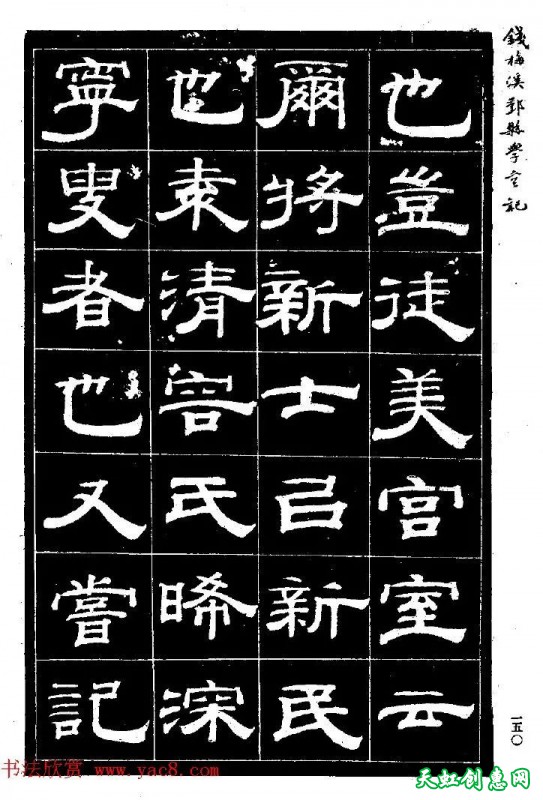 錢梅溪鄞縣學宮記
也豈徒美宮室云
爾將新士㠯新民
也袁清容氏晞深
寧叟者也又嘗記
一五〇
书法欣赏 www.yac8.com
天虹创惠网